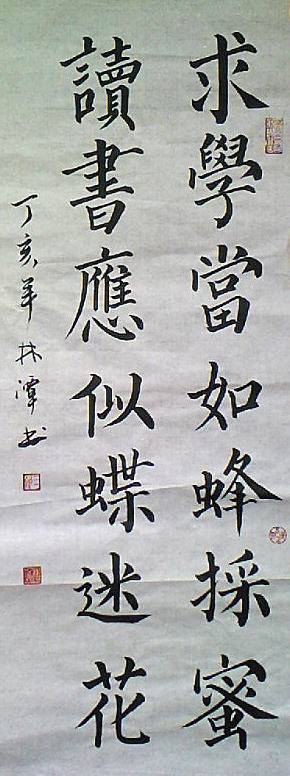 求學當如蜂採蜜
讀書應似蝶迷花
丁亥年林潭书